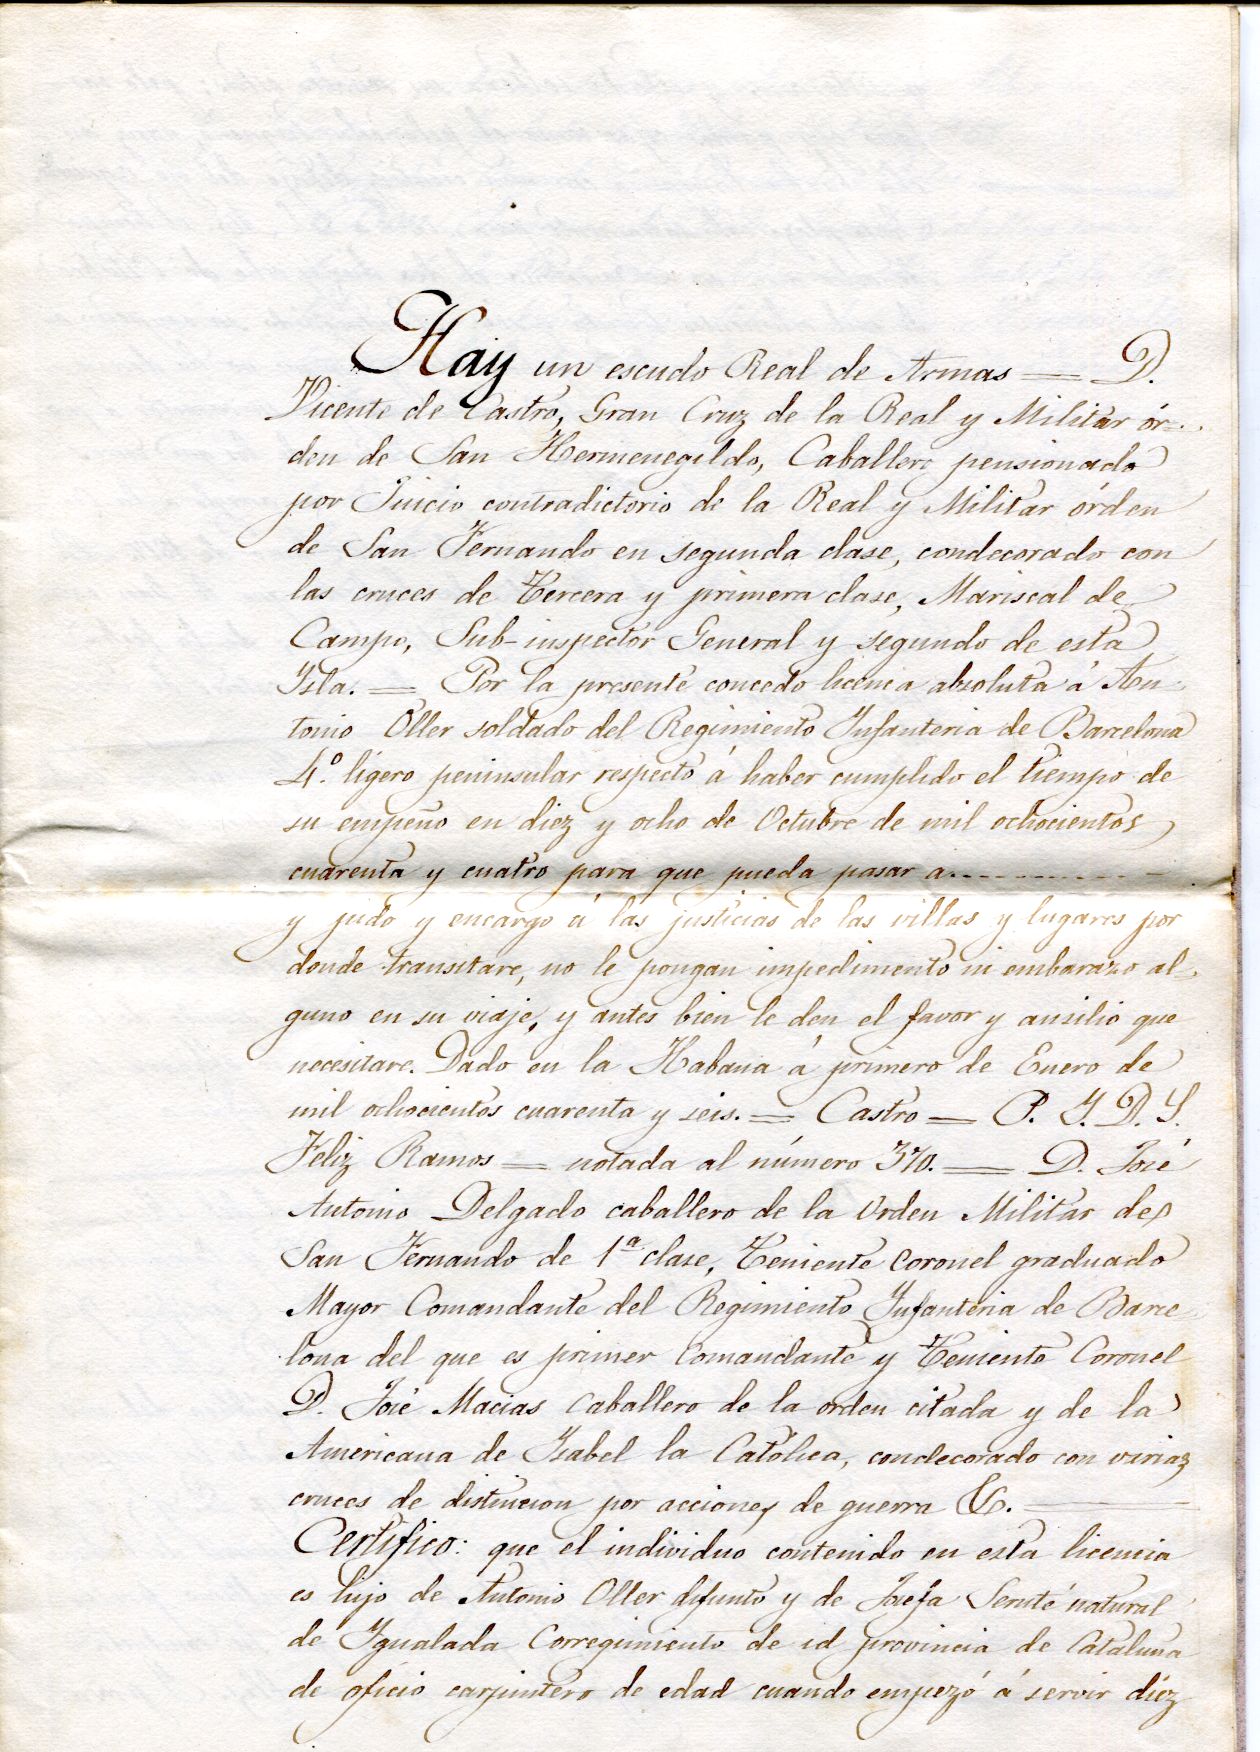 Hay un escudo Real de Armas = D.
Vicente de Castro, Gran Cruz de la Real y Militar ór-
den de San Hermenegildo, Caballero pensionado
por Juicio contradictorio de la Real y Militar órden
de San Fernando en segunda clase, condecorado con
las cruces de tercera y primera clase, Mariscal de
Campo, Sub-inspector General y segundo de esta
Ysla. = Por la presente concedo licencia absoluta á An-
tonio Oller soldado del Regimiento Ynfanteria de Barcelona
4.º ligero peninsular respecto á haber cumplido el tiempo de
su empeño en diez y ocho de Octubre de mil ochocientos
cuarenta y cuatro para que pueda pasar a..........
y pido y encargo á las justicias de las villas y lugares por
donde transitare, no le pongan impedimento ni embarazo al-
guno en su viaje, y antes bien le den el favor y ausilio que
necesitare. Dado en la Habana á primero de Enero de
mil ochocientos cuarenta y seis. = Castro = P. Y. D. S.
Feliz Ramos = notada al número 370. = D. José
Antonio Delgado caballero de la Orden Militar de
San Fernando de 1ª clase, Teniente Coronel graduado
Mayor Comandante del Regimiento Ynfanteria de Barce
lona del que es primer Comandante y Teniente Coronel
D. José Macias Caballero de la orden citada y de la
Americana de Ysabel la Católica, condecorado con varias
cruces de distincion por acciones de guerra &.
Certífico: que el individuo contenido en esta licencia
es hijo de Antonio Oller difunto y de Josefa natural
de Ygualada Corregimiento de id provincia de Cataluna
de oficio carpintero de edad cuando empezó á servir diéz